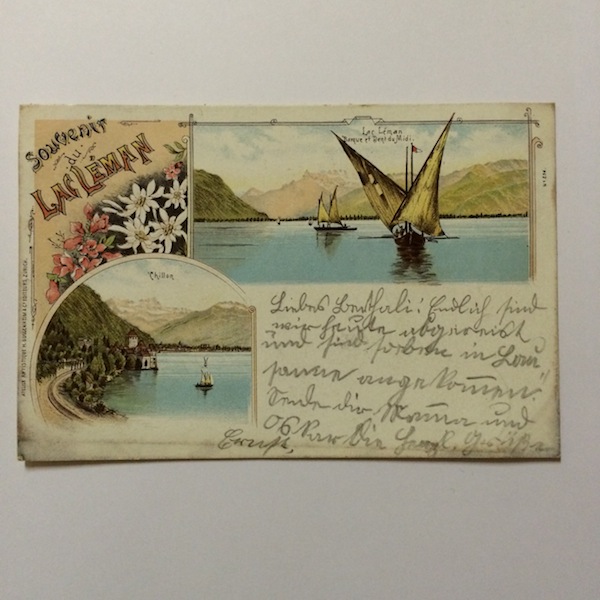 Souvenir
du
LAC LÉMAN
Lac Léman
Barque et Dent du Midi.
Chillon
Liebes Berthali! Endlich sind
wir heute abgereist
und sind soeben in Lau
sanne angekommen.
Sende dir Mamma und
Oskar die herzl. Grüße
Ernst.